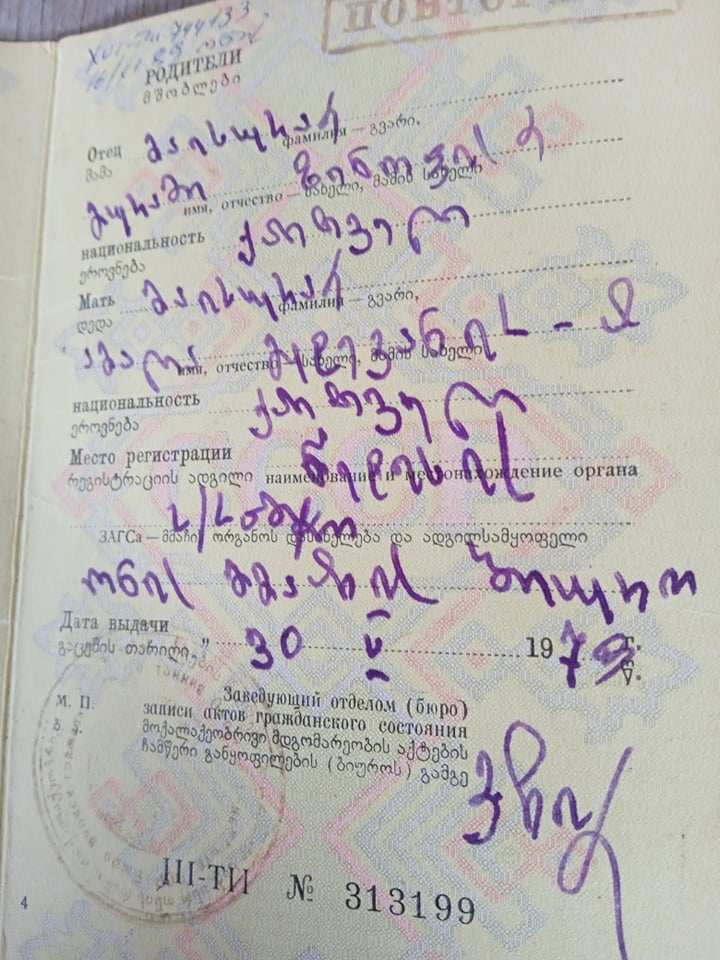 ПОВТОРН
РОДИТЕЛИ
მშობლები
Отец მაისურაძე
მამა
фамилия — გვარი,
გურამი ზინოვის ძე
имя, отчество — სახელი, მამის სახელი
национальность ქართველი
ეროვნება
Мать მაისურაძე
დედა
фамилия — გვარი,
имя, отчество — სახელი, მამის სახელი
национальность ქართველი
ეროვნება
Место регистрации
რეგისტრაციის ადგილი наименование и местонахождение органа
ს/საბჭო
ЗАГСа — მმაჩის ორგანოს დასახელება და ადგილსამყოფელი
ონის მმაჩის ბიურო
Дата выдачи
გაცემის თარიღი „ 30 V 197 г.
წ.
М. П.
ბ. ა.
Заведующий отделом (бюро)
записи актов гражданского состояния
მოქალაქეობრივი მდგომარეობის აქტების
ჩამწერი განყოფილების (ბიუროს) გამგე
III-ТИ № 313199
4